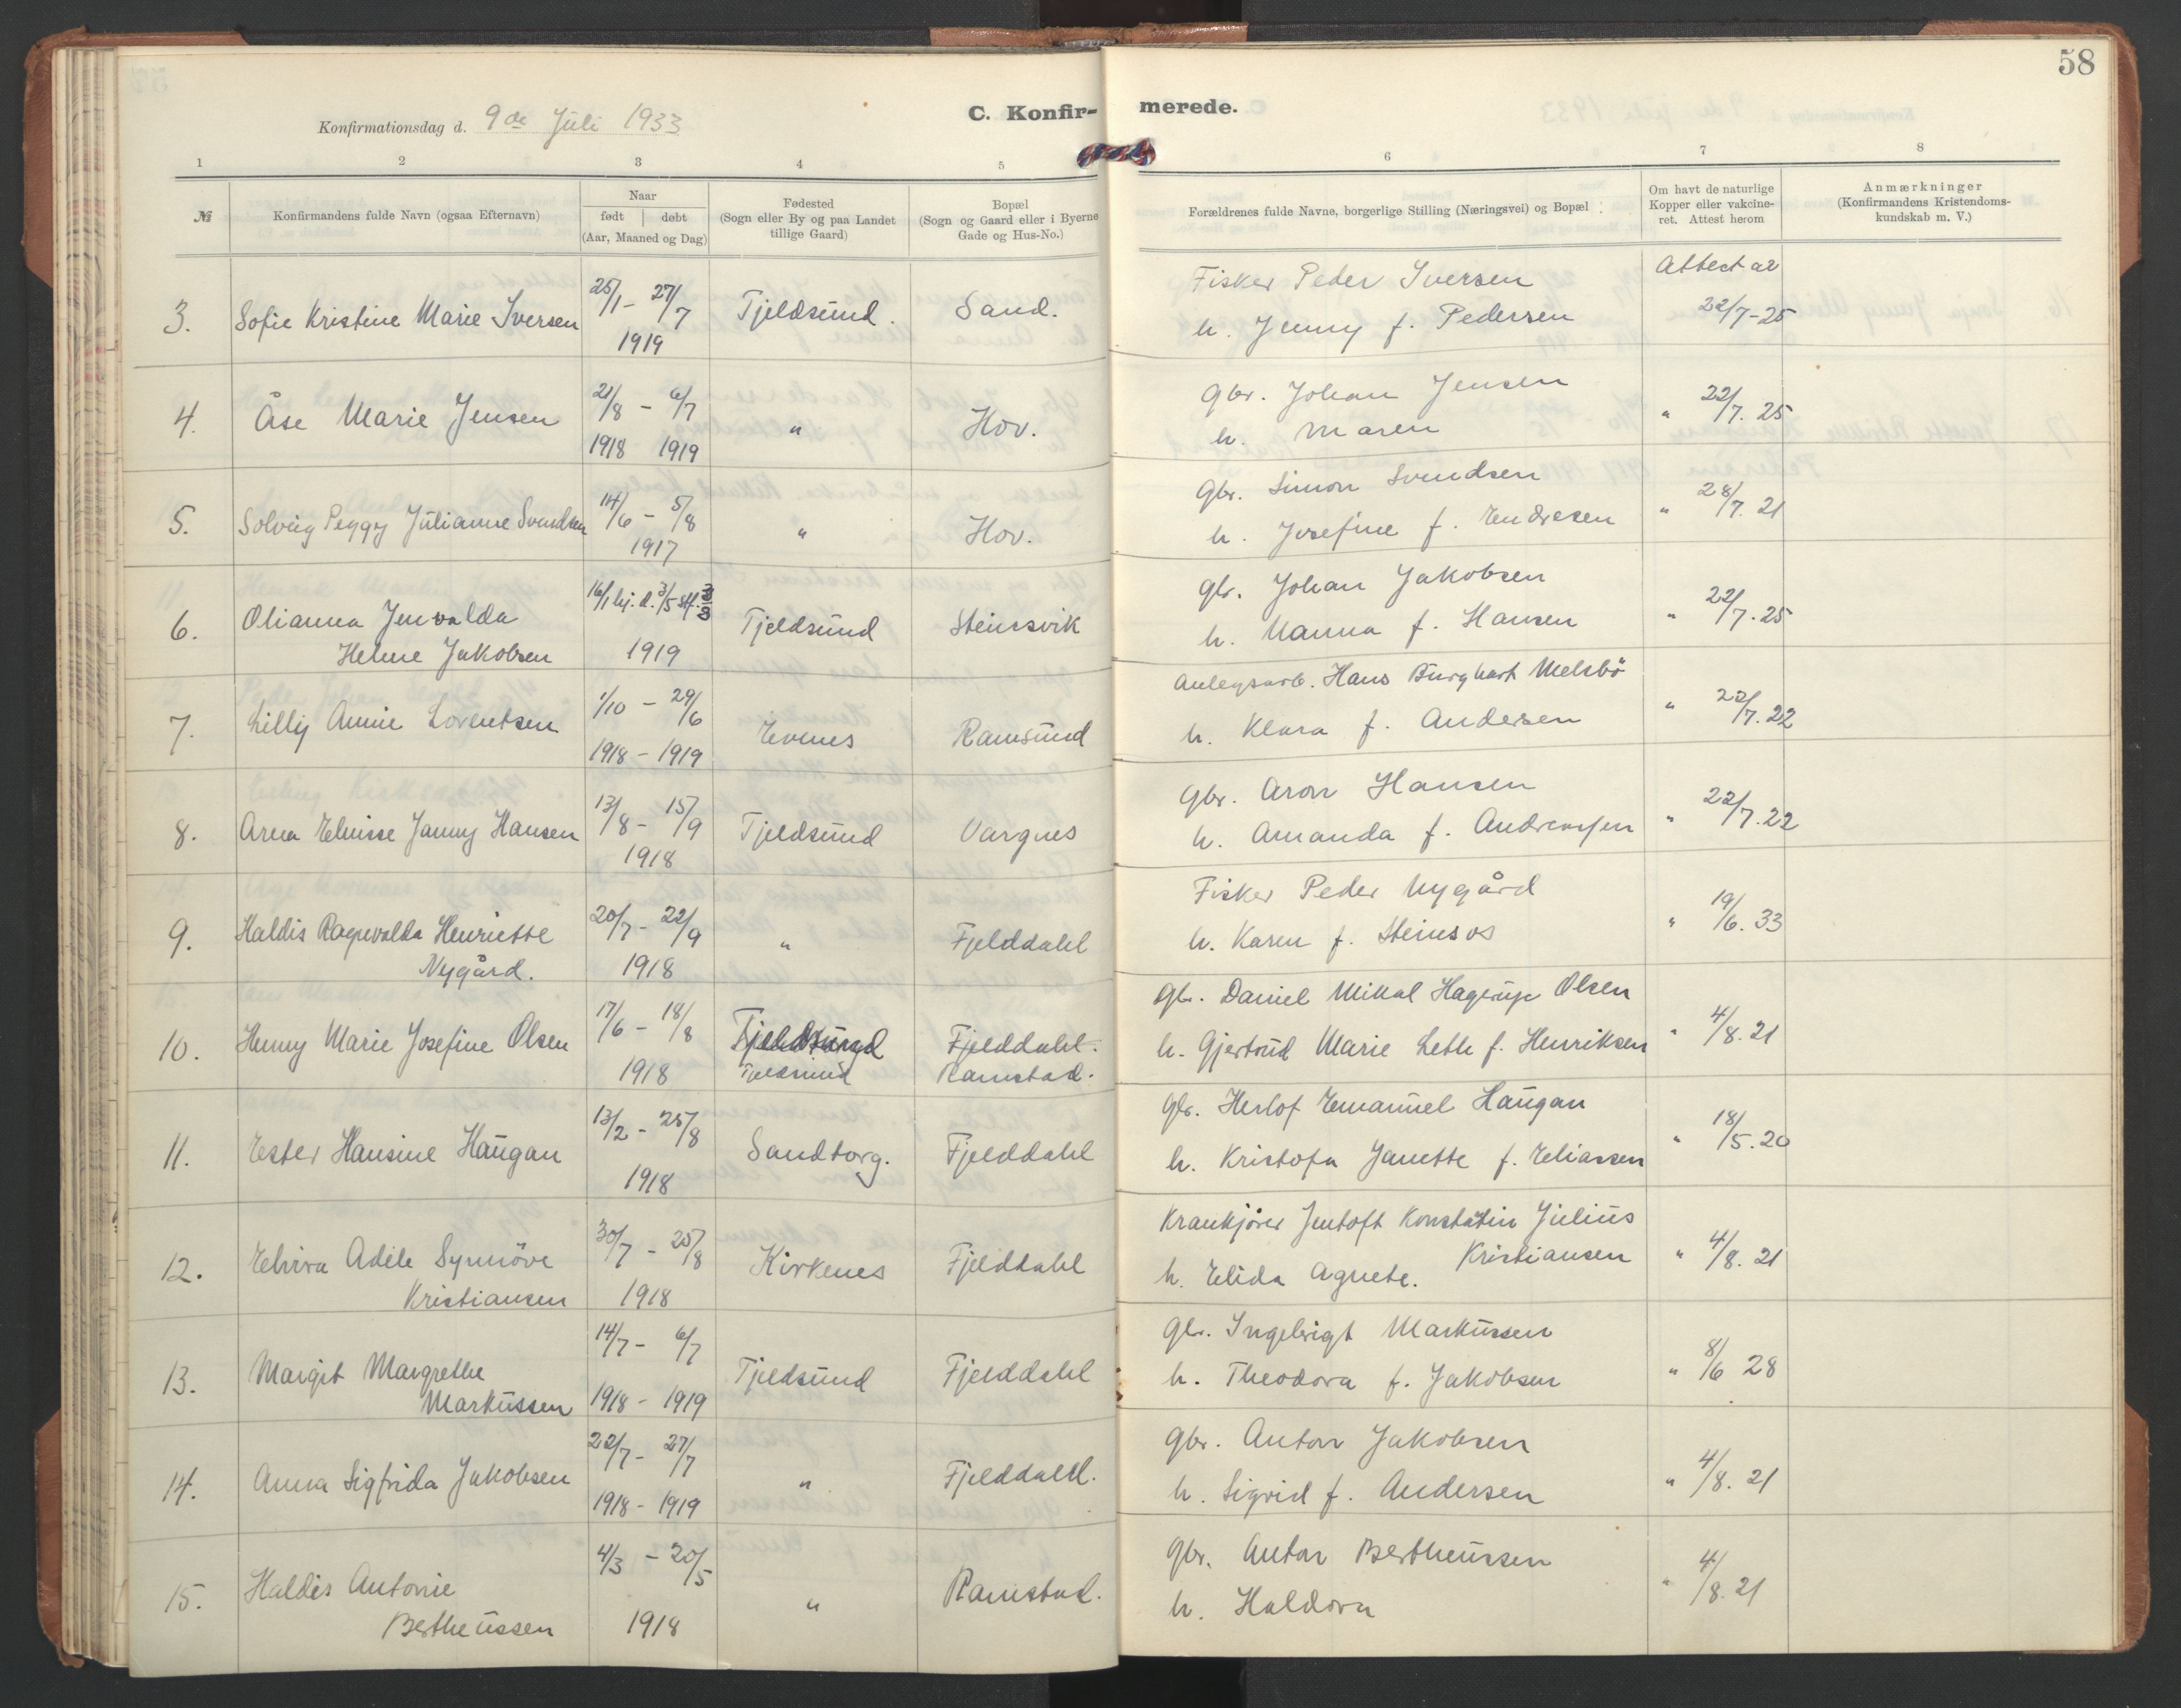 58
Konfirmationsdag d. 9de Juli 1933
C. Konfirmerede.
1 2 3 4 5 6 7 8
№
Konfirmandens fulde Navn (ogsaa Efternavn)
Naar
født døbt
(Aar, Maaned og Dag)
Fødested
(Sogn eller By og paa Landet
tillige Gaard)
Bopæl
(Sogn og Gaard eller i Byerne
Gade og Hus-No.)
Forældrenes fulde Navne, borgerlige Stilling (Næringsvei) og Bopæl
Om havt de naturlige
Kopper eller vakcine-
ret. Attest herom
Anmærkninger
(Konfirmandens Kristendoms-
kundskab m. V.)
3. Sofie Kristine Marie Iversen 25/1 - 27/7 1919 Tjeldsund. Sand.
Fisker Peder Iversen
h. Jenny f. Pedersen
Attest av 22/7-25
4. Åse Marie Jensen 21/8 - 6/7 1918 1919 " Hov.
Gbr. Johan Jensen
h. Maren
" 22/7. 25
5. Solveig Peggy Julianne Svendsen 14/6 - 5/8 1917 " Hov.
Gbr. Simon Svendsen
h. Josefine f. Endresen
" 28/7. 21
6. Olianna Jenvalda
Helene Jakobsen
16/1 hj. d. 3/5 st. 3/8 1919 Tjeldsund Steinsvik
Gbr. Johan Jakobsen
h. Nanna f. Hansen
" 22/7. 25
7. Lilly Annie Lorentsen 1/10 - 29/6 1918 - 1919 Evenes Ramsund
Anlegsarb. Hans Burghart Melsbö
h. Klara f. Andersen
" 22/7. 22
8. Arna Elvisse Janny Hansen 13/8 - 15/9 1918 Tjeldsund Vargnes
Gbr. Aron Hansen
h. Amanda f. Andreassen
" 22/7. 22
9. Haldis Ragnvalda Henriette
Nygård.
20/7 - 22/9 1918 " Fjelddahl
Fisker Peder Nygård
h. Karen f. Steinsos
" 19/6. 33
10. Henny Marie Josefine Olsen 17/6 - 18/8 1918 Tjeldsund
Tjeldsund
Fjelddahl.
Ramstad.
Gbr. Daniel Mikal Hagerup Olsen
h. Gjertrud Marie Leth f. Henriksen
" 4/8. 21
11. Ester Hansine Haugan 13/2 - 25/8 1918 Sandtorg. Fjelddahl
Gbr. Herlof Emanuel Haugan
h. Kristofa Janette f. Eliassen
" 18/5. 20
12. Elvira Adele Synnöve
Kristiansen
30/7 - 25/8 1918 Kirkenes Fjelddahl
Krankjörer Jentoft Konstatin Julius
Kristiansen
h. Elida Agnete.
" 4/8. 21
13. Margit Margrethe
Markussen
14/7 - 6/7 1918 - 1919 Tjeldsund Fjelddahl
Gbr. Ingebrigt Markussen
h. Theodora f. Jakobsen
" 8/6 28
14. Anna Sigfrida Jakobsen 22/7 - 27/7 1918 - 1919 " Fjelddahl.
Gbr. Anton Jakobsen
h. Sigrid f. Andersen
" 4/8. 21
15. Haldis Antonie
Bertheussen
4/3 - 20/5 1918 " Ramstad.
Gbr. Anton Bertheussen
h. Haldora
" 4/8. 21